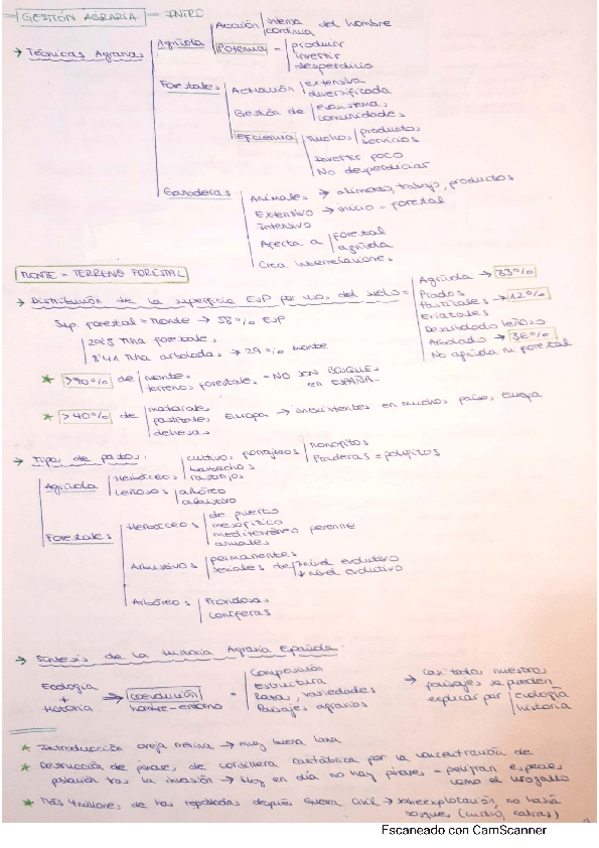 GESTIÓN AGRARIA - INTRO
→ Técnicas Agrarias
Agrícola
Acción
intensa
continua
del hombre
Potencia -
producir
invertir
desperdicio
Forestales
Actuación
extensiva
diversificada
Gestión de
ecosistema,
comunidades
Eficiencia
mucho,
productos
servicios
Invertir poco
No desperdiciar
Ganaderas
Animales → alimento, trabajo, productos
Extensivo → inicio - forestal
Intensivo
Afecta a
forestal
agrícola
Crea interrelaciones
MONTE = TERRENO FORESTAL
→ Distribución de la superficie ESP por uso del suelo =
Agrícola → 33%
Prados
Pastizales → 12%
Eriales
Desarbolado leñoso
Arbolado → 36%
No agrícola ni forestal
Sup. forestal = Monte → 58% ESP
Mha forestales
Mha arboladas → 29% monte
* de
monte,
terrenos forestales - NO SON BOSQUES
en ESPAÑA -
* >40% de
matorrales
pastizales
dehesas
Europa → inexistentes en muchos países Europa
→ Tipo de pastos:
Agrícola
Herbáceos
cultivos forrajeros
monofitos
Praderas = polifitos
barbechos
rastrojos
leñosos
arbóreo
arbustivo
Forestales
Herbáceos
de puerto
mesofítico
mediterráneo perenne
anuales
Arbustivos
permanentes
seriales de
↑ nivel evolutivo
↓ nivel evolutivo
Arbóreos
Frondosas
coníferas
→ Síntesis de la Historia Agraria Española:
Ecología
+
Historia
⇒
coevolución
hombre-entorno
=
Composición
Estructura
Razas, variedades
Paisajes agrarios
→
casi todos nuestros
paisajes se pueden
explicar por
ecología
historia
* Introducción oveja merina → muy buena lana
* Destrucción de pinares de cordillera cantábrica por la concentración de
población tras la invasión → Hoy en día no hay pinares - peligran especies
como el urogallo
* Más 4 millones de has repobladas después Guerra Civil → sobreexplotación, no había
bosques
Escaneado con CamScanner